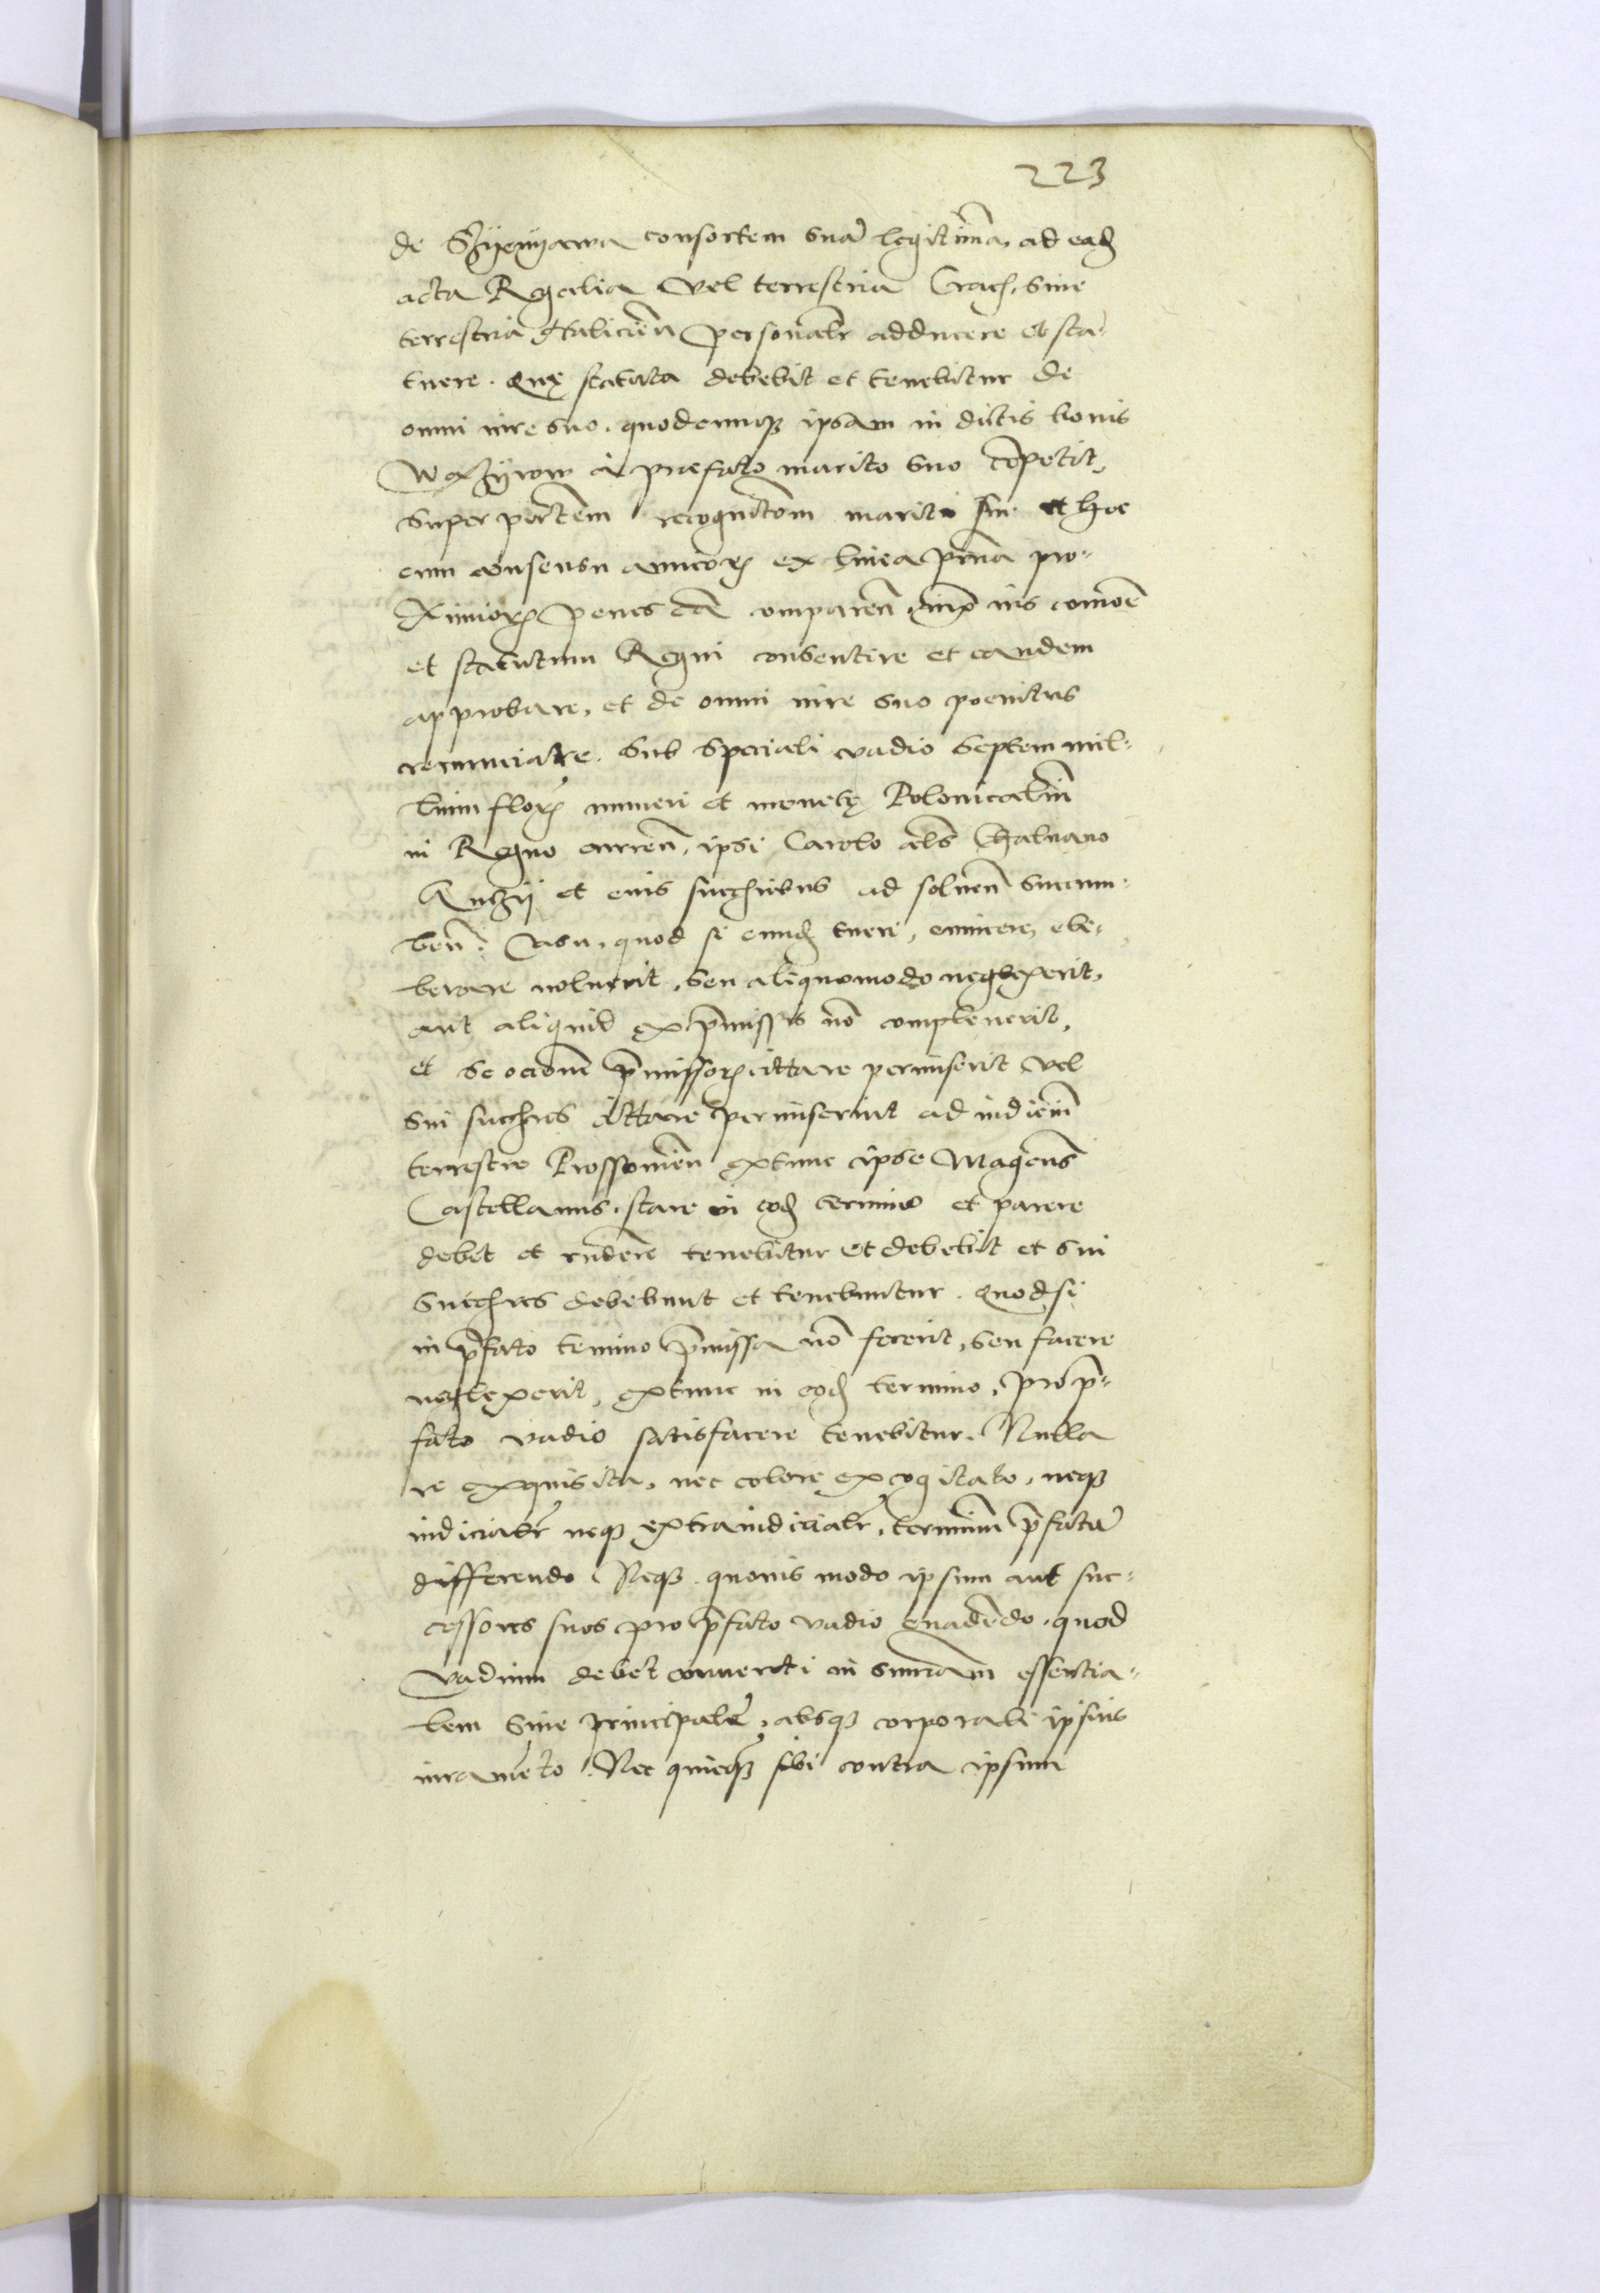 223
de Szyenyawa consortem suã legitimã, ad eadẽ
acta Regalia vel terrestria Cracẽ, siue
terrestria Haliciẽn personalr̃ adducere et sta-
tuere. Quę statuta debebit et tenebitur de
omni iure suo, quodcunq3 ipsam in dictis bonis
à praefato marito suo cõpetit,
super recognitõm mariti sui et hoc
cum consensu amicorȝ ex linea pr̃na pro-
ximiorȝ penes eã comparen̄ iuxˀ ius comõe
et statutum Regni consentire et eandem
approbare, et de omni iure suo poenitus
renunciare. Sub speciali vadio septem mil-
lium florȝ numeri et monetę Polonicalem̃
in Regno curren̄, ipsi Carolo als̃
et eius succribus ad soluen̄ succum-
ben̄. Casu, quod si eundẽ tueri, euincere,
berare noluerit, seu aliquomodo neglexerit,
aut aliquid ex p̄missis nõ compleuerit,
et se p̄missorȝ cittare permiserit vel
sui succres cittare permiserint ad iudiciũ
terrestre extunc ipse Mag͠cus
Castellanus, stare in eodẽ termino et parere
debet et rñdere tenebitur et debebit et sui
succres debebunt et tenebuntur. Quod si
in p̄fato temino p̄missa nõ fecerit, seu facere
neglexerit, extunc in eodẽ termino, pro p̄-
fato vadio satisfacere tenebitur. Nulla
re exquisita, nec colore excogitato, neq3
iudicialr̃ neq3 extraiudicialr̃, terminũ p̄fatũ
differendo. Neq3 quouis modo ipsum aut suc-
cessores suos pro p̄fato vadio euadẽdo, quod
vadium debet conuerti in summam essentia-
lem siue principalẽ, absq3 corporali ipsius
iuramẽto. Nec quicq̃ sibi contra ipsum